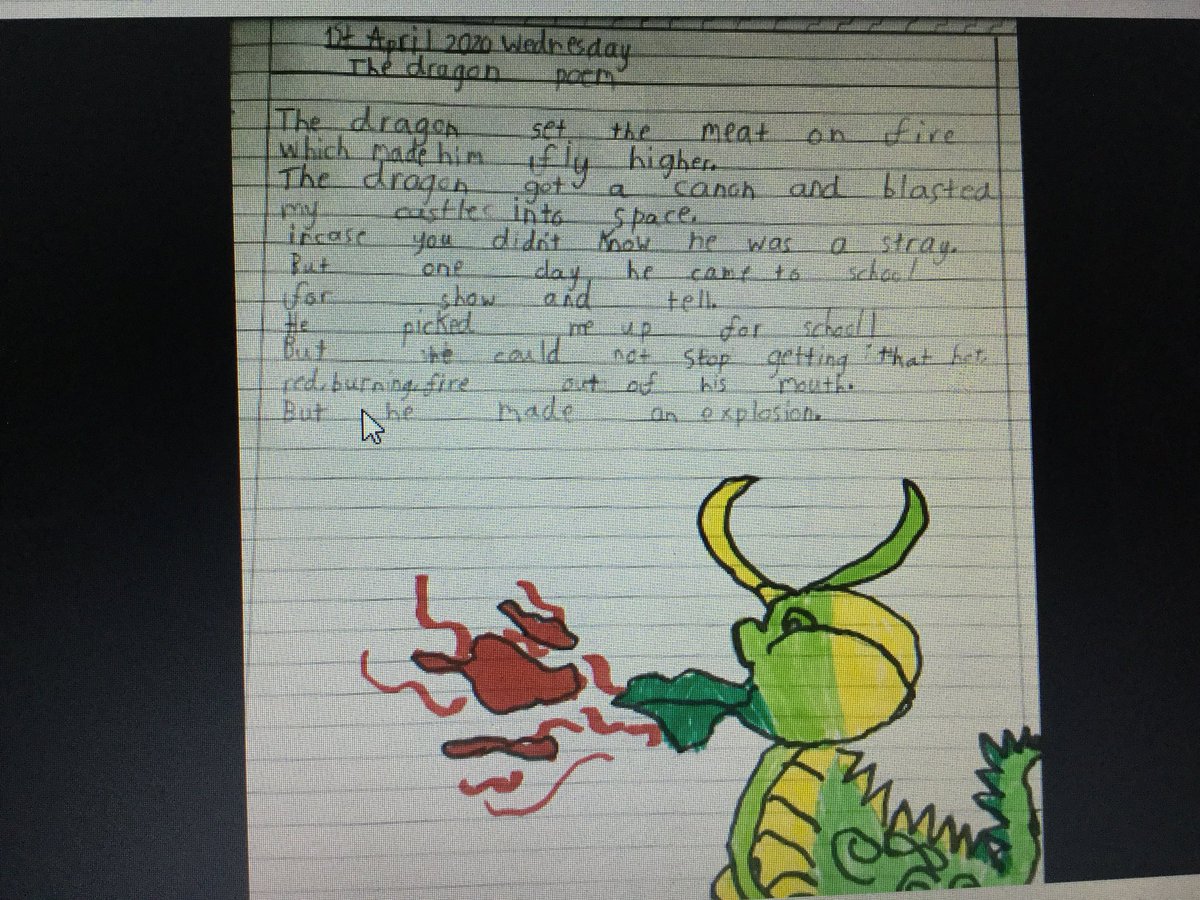 1st April 2020 Wednesday
The dragon poem
The dragon set the meat on fire
which made him fly higher.
The dragon got a canon and blasted
my castles into space.
incase you didn't know he was a stray.
But one day he came to school
for show and tell.
He picked me up for school!
But he could not stop getting that hot,
red, burning, fire out of his mouth.
But he made an explosion.